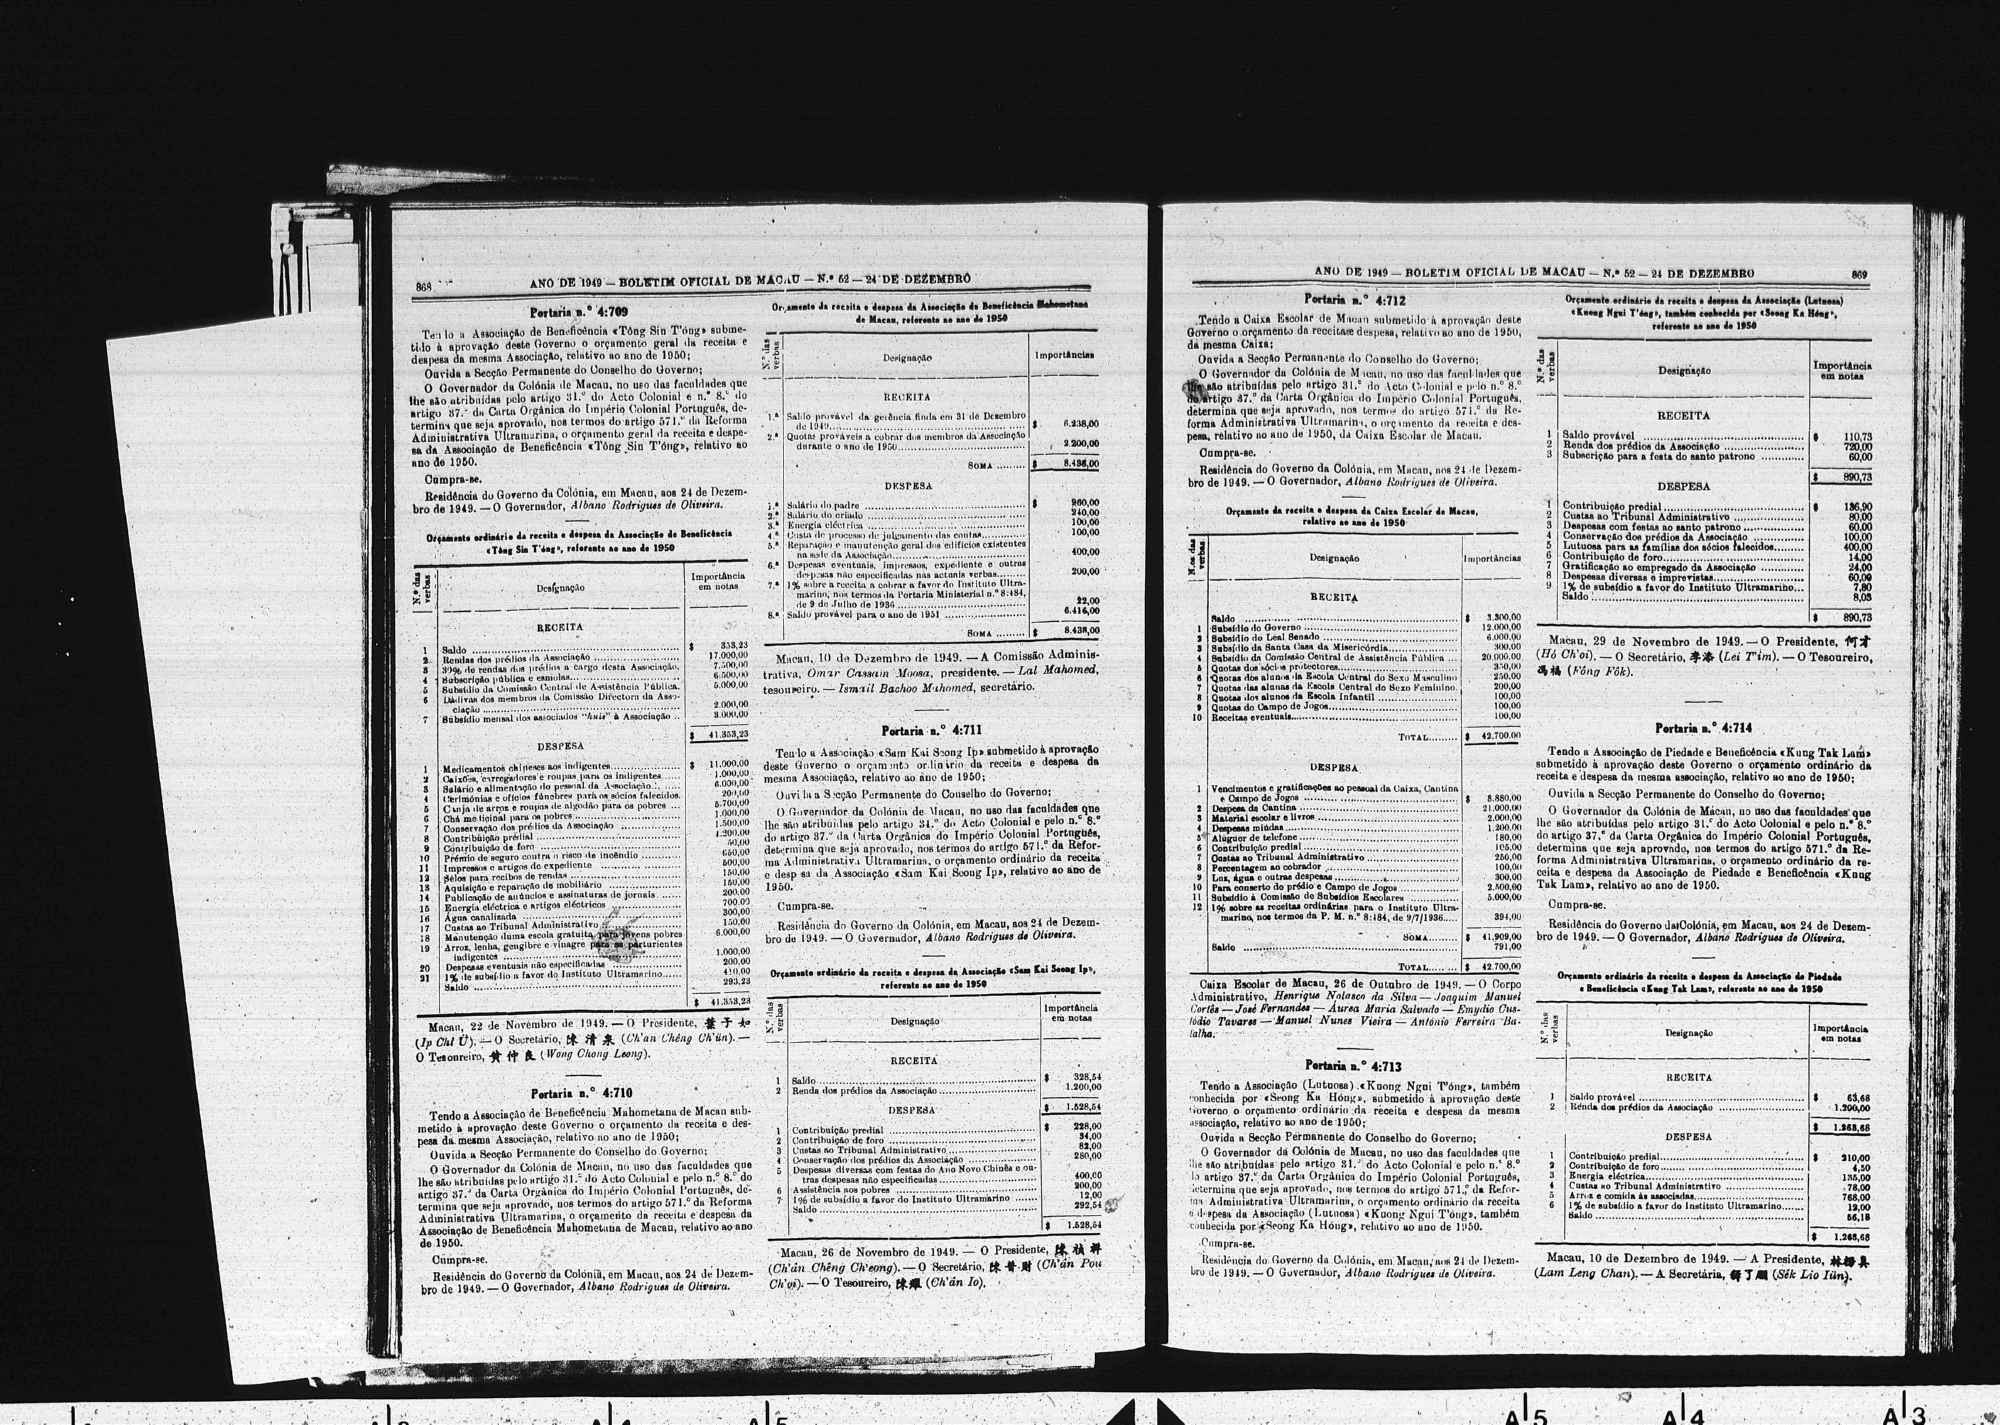 868
ANO DE 1949 — BOLETIM OFICIAL DE MACAU — N.º 52 — 24 DE DEZEMBRO
Portaria n.º 4:709
Tendo a Associação de Beneficência «Tông Sin T'óng» subme-
tido à aprovação deste Governo o orçamento geral da receita e
despesa da mesma Associação, relativo ao ano de 1950;
Ouvida a Secção Permanente do Conselho do Governo;
O Governador da Colónia de Macau, no uso das faculdades que
lhe são atribuídas pelo artigo 31.º do Acto Colonial e n.º 8.º do
artigo 37.º da Carta Orgânica do Império Colonial Português, de-
termina que seja aprovado, nos termos do artigo 571.º da Reforma
Administrativa Ultramarina, o orçamento geral da receita e despe-
sa da Associação de Beneficência «Tông Sin T'óng», relativo ao
ano de 1950.
Cumpra-se.
Residência do Governo da Colónia, em Macau, aos 24 de Dezem-
bro de 1949. — O Governador, Albano Rodrigues de Oliveira.
Orçamento ordinário da receita e despesa da Associação de Beneficência
«Tông Sin T'óng», referente ao ano de 1950
N.º das verbas
Designação
Importância em notas
RECEITA
1 Saldo $ 353,23
2 Rendas dos prédios da Associação 17.000,00
3 30% de rendas dos prédios a cargo desta Associação. 7.500,00
4 Subscrição pública e esmolas 6.500,00
5 Subsídio da Comissão Central de Assistência Pública. 5.000,00
6 Dádivas dos membros da Comissão Directora da Asso-
ciação 2.000,00
7 Subsídio mensal dos associados "huis" à Associação 3.000,00
$ 41.353,23
DESPESA
1 Medicamentos chineses aos indigentes $ 11.000,00
2 Caixões, carregadores e roupas para os indigentes 1.000,00
3 Salário e alimentação do pessoal da Associação 6.000,00
4 Cerimónias e ofícios fúnebres para os sócios falecidos. 200,00
5 Canja de arroz e roupas de algodão para os pobres 5.700,00
6 Chá medicinal para os pobres 1.000,00
7 Conservação dos prédios da Associação 1.500,00
8 Contribuição predial 4.200,00
9 Contribuição de foro 50,00
10 Prémio de seguro contra o risco de incêndio 650,00
11 Impressos e artigos de expediente 500,00
12 Selos para recibos de rendas 150,00
13 Aquisição e reparação de mobiliário 150,00
14 Publicação de anúncios e assinaturas de jornais 200,00
15 Energia eléctrica e artigos eléctricos 700,00
16 Água canalizada 300,00
17 Custas ao Tribunal Administrativo 150,00
18 Manutenção duma escola gratuita para jovens pobres 6.000,00
19 Arroz, lenha, gengibre e vinagre para as parturientes
indigentes 1.000,00
20 Despesas eventuais não especificadas 200,00
21 1% de subsídio a favor do Instituto Ultramarino 410,00
Saldo 293,23
$ 41.353,23
Macau, 22 de Novembro de 1949. — O Presidente, 葉子如
(Ip Chi Ü). — O Secretário, 陳清泉 (Ch'an Chêng Ch'ün). —
O Tesoureiro, 黄仲良 (Wong Chong Leong).
Portaria n.º 4:710
Tendo a Associação de Beneficência Mahometana de Macau sub-
metido à aprovação deste Governo o orçamento da receita e des-
pesa da mesma Associação, relativo ao ano de 1950;
Ouvida a Secção Permanente do Conselho do Governo;
O Governador da Colónia de Macau, no uso das faculdades que
lhe são atribuídas pelo artigo 31.º do Acto Colonial e n.º 8.º do
artigo 37.º da Carta Orgânica do Império Colonial Português, de-
termina que seja aprovado, nos termos do artigo 571.º da Reforma
Administrativa Ultramarina, o orçamento da receita e despesa da
Associação de Beneficência Mahometana de Macau, relativo ao ano
de 1950.
Cumpra-se.
Residência do Governo da Colónia, em Macau, aos 24 de Dezem-
bro de 1949. — O Governador, Albano Rodrigues de Oliveira.
Orçamento da receita e despesa da Associação de Beneficência Mahometana
de Macau, referente ao ano de 1950
N.º das verbas
Designação
Importâncias
RECEITA
1.ª Saldo provável da gerência finda em 31 de Dezembro
de 1949 $ 6.238,00
2.ª Quotas prováveis a cobrar dos membros da Associação
durante o ano de 1950 2.200,00
SOMA $ 8.438,00
DESPESA
1.ª Salário do padre $ 960,00
2.ª Salário do criado 240,00
3.ª Energia eléctrica 100,00
4.ª Custa de processo de julgamento das contas 100,00
5.ª Reparação e manutenção geral dos edifícios existentes
na sede da Associação 400,00
6.ª Despesas eventuais, impressos, expediente e outras
despesas não especificadas nas actuais verbas 200,00
7.ª 1% sobre a receita a cobrar a favor do Instituto Ultra-
marino, nos termos da Portaria Ministerial n.º 8:484,
de 9 de Julho de 1936 22,00
8.ª Saldo provável para o ano de 1951 6.416,00
SOMA $ 8.438,00
Macau, 10 de Dezembro de 1949. — A Comissão Adminis-
trativa, Omar Cassam Moosa, presidente. — Lal Mahomed,
tesoureiro. — Ismail Bachoo Mahomed, secretário.
Portaria n.º 4:711
Tendo a Associação «Sam Kai Seong Ip» submetido à aprovação
deste Governo o orçamento ordinário da receita e despesa da
mesma Associação, relativo ao ano de 1950;
Ouvida a Secção Permanente do Conselho do Governo;
O Governador da Colónia de Macau, no uso das faculdades que
lhe são atribuídas pelo artigo 31.º do Acto Colonial e pelo n.º 8.º
do artigo 37.º da Carta Orgânica do Império Colonial Português,
determina que seja aprovado, nos termos do artigo 571.º da Refor-
ma Administrativa Ultramarina, o orçamento ordinário da receita
e despesa da Associação «Sam Kai Seong Ip», relativo ao ano de
1950.
Cumpra-se.
Residência do Governo da Colónia, em Macau, aos 24 de Dezem-
bro de 1949. — O Governador, Albano Rodrigues de Oliveira.
Orçamento ordinário da receita e despesa da Associação «Sam Kai Seong Ip»,
referente ao ano de 1950
N.º das verbas
Designação
Importância em notas
RECEITA
1 Saldo $ 328,54
2 Renda dos prédios da Associação 1.200,00
$ 1.528,54
DESPESA
1 Contribuição predial $ 228,00
2 Contribuição de foro 34,00
3 Custas ao Tribunal Administrativo 82,00
4 Conservação dos prédios da Associação 280,00
5 Despesas diversas com festas do Ano Novo Chinês e ou-
tras despesas não especificadas 400,00
6 Assistência aos pobres 200,00
7 1% de subsídio a favor do Instituto Ultramarino 12,00
Saldo 292,54
$ 1.528,54
Macau, 26 de Novembro de 1949. — O Presidente, 陳禎祥
(Ch'án Chêng Ch'eong). — O Secretário, 陳普財 (Ch'án Pou
Ch'oi). — O Tesoureiro, 陳耀 (Ch'án Io).
ANO DE 1949 — BOLETIM OFICIAL DE MACAU — N.º 52 — 24 DE DEZEMBRO
869
Portaria n.º 4:712
Tendo a Caixa Escolar de Macau submetido à aprovação deste
Governo o orçamento da receita e despesa, relativo ao ano de 1950,
da mesma Caixa;
Ouvida a Secção Permanente do Conselho do Governo;
O Governador da Colónia de Macau, no uso das faculdades que
lhe são atribuídas pelo artigo 31.º do Acto Colonial e pelo n.º 8.º
do artigo 37.º da Carta Orgânica do Império Colonial Português,
determina que seja aprovado, nos termos do artigo 571.º da Re-
forma Administrativa Ultramarina, o orçamento da receita e des-
pesa, relativo ao ano de 1950, da Caixa Escolar de Macau.
Cumpra-se.
Residência do Governo da Colónia, em Macau, aos 24 de Dezem-
bro de 1949. — O Governador, Albano Rodrigues de Oliveira.
Orçamento da receita e despesa da Caixa Escolar de Macau,
relativo ao ano de 1950
N.os das verbas
Designação
Importâncias
RECEITA
Saldo $ 3.300,00
1 Subsídio do Governo 12.000,00
2 Subsídio do Leal Senado 6.000,00
3 Subsídio da Santa Casa da Misericórdia 300,00
4 Subsídio da Comissão Central de Assistência Pública 20.000,00
5 Quotas dos sócios protectores 350,00
6 Quotas dos alunos da Escola Central do Sexo Masculino 250,00
7 Quotas das alunas da Escola Central do Sexo Feminino. 200,00
8 Quotas dos alunos da Escola Infantil 100,00
9 Quotas do Campo de Jogos 100,00
10 Receitas eventuais 100,00
TOTAL $ 42.700,00
DESPESA
1 Vencimentos e gratificações ao pessoal da Caixa, Cantina
e Campo de Jogos $ 8.880,00
2 Despesa da Cantina 21.000,00
3 Material escolar e livros 2.000,00
4 Despesas miúdas 1.200,00
5 Aluguer de telefone 180,00
6 Contribuição predial 105,00
7 Custas ao Tribunal Administrativo 250,00
8 Percentagem ao cobrador 100,00
9 Luz, água e outras despesas 300,00
10 Para conserto do prédio e Campo de Jogos 2.500,00
11 Subsídio à Comissão de Subsídios Escolares 5.000,00
12 1% sobre as receitas ordinárias para o Instituto Ultra-
marino, nos termos da P. M. n.º 8:484, de 9/7/1936 394,00
SOMA $ 41.909,00
Saldo 791,00
TOTAL $ 42.700,00
Caixa Escolar de Macau, 26 de Outubro de 1949. — O Corpo
Administrativo, Henrique Nolasco da Silva — Joaquim Manuel
Cortês — José Fernandes — Áurea Maria Salvado — Emydio Cus-
tódio Tavares — Manuel Nunes Vieira — António Ferreira Ba-
talha.
Portaria n.º 4:713
Tendo a Associação (Lutuosa) «Kuong Ngui T'óng», também
conhecida por «Seong Ka Hóng», submetido à aprovação deste
Governo o orçamento ordinário da receita e despesa da mesma
associação, relativo ao ano de 1950;
Ouvida a Secção Permanente do Conselho do Governo;
O Governador da Colónia de Macau, no uso das faculdades que
lhe são atribuídas pelo artigo 31.º do Acto Colonial e pelo n.º 8.º
do artigo 37.º da Carta Orgânica do Império Colonial Português,
determina que seja aprovado, nos termos do artigo 571.º da Refor-
ma Administrativa Ultramarina, o orçamento ordinário da receita
e despesa da Associação (Lutuosa) «Kuong Ngui T'óng», também
conhecida por «Seong Ka Hóng», relativo ao ano de 1950.
Cumpra-se.
Residência do Governo da Colónia, em Macau, aos 24 de Dezem-
bro de 1949. — O Governador, Albano Rodrigues de Oliveira.
Orçamento ordinário da receita e despesa da Associação (Lutuosa)
«Kuong Ngui T'óng», também conhecida por «Seong Ka Hóng»,
referente ao ano de 1950
N.º das verbas
Designação
Importância em notas
RECEITA
1 Saldo provável $ 110,73
2 Renda dos prédios da Associação 720,00
3 Subscrição para a festa do santo patrono 60,00
$ 890,73
DESPESA
1 Contribuição predial $ 136,90
2 Custas ao Tribunal Administrativo 80,00
3 Despesas com festas ao santo patrono 60,00
4 Conservação dos prédios da Associação 100,00
5 Lutuosa para as famílias dos sócios falecidos 400,00
6 Contribuição de foro 14,00
7 Gratificação ao empregado da Associação 24,00
8 Despesas diversas e imprevistas 60,00
9 1% de subsídio a favor do Instituto Ultramarino 7,80
Saldo 8,03
$ 890,73
Macau, 29 de Novembro de 1949. — O Presidente, 何才
(Hó Ch'oi). — O Secretário, 李添 (Lei T'im). — O Tesoureiro,
馮福 (Fông Fôk).
Portaria n.º 4:714
Tendo a Associação de Piedade e Beneficência «Kung Tak Lam»
submetido à aprovação deste Governo o orçamento ordinário da
receita e despesa da mesma associação, relativo ao ano de 1950;
Ouvida a Secção Permanente do Conselho do Governo;
O Governador da Colónia de Macau, no uso das faculdades que
lhe são atribuídas pelo artigo 31.º do Acto Colonial e pelo n.º 8.º
do artigo 37.º da Carta Orgânica do Império Colonial Português,
determina que seja aprovado, nos termos do artigo 571.º da Re-
forma Administrativa Ultramarina, o orçamento ordinário da re-
ceita e despesa da Associação de Piedade e Beneficência «Kung
Tak Lam», relativo ao ano de 1950.
Cumpra-se.
Residência do Governo da Colónia, em Macau, aos 24 de Dezem-
bro de 1949. — O Governador, Albano Rodrigues de Oliveira.
Orçamento ordinário da receita e despesa da Associação de Piedade
e Beneficência «Kung Tak Lam», referente ao ano de 1950
N.º das verbas
Designação
Importância em notas
RECEITA
1 Saldo provável $ 63,68
2 Renda dos prédios da Associação 1.200,00
$ 1.263,68
DESPESA
1 Contribuição predial $ 210,00
2 Contribuição de foro 4,50
3 Energia eléctrica 135,00
4 Custas ao Tribunal Administrativo 78,00
5 Arroz e comida às associadas 768,00
6 1% de subsídio a favor do Instituto Ultramarino 12,00
Saldo 56,18
$ 1.263,68
Macau, 10 de Dezembro de 1949. — A Presidente,
(Lam Leng Chan). — A Secretária, (Sék Lio Iün).
A 5
A 5
A 4
A 3